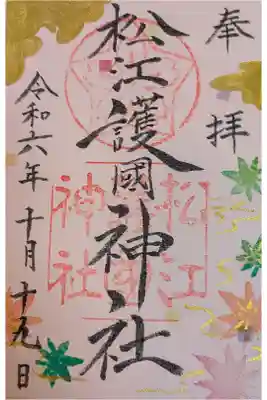 奉拝
松江護國神社
松江
神社
令和六年十月十九日